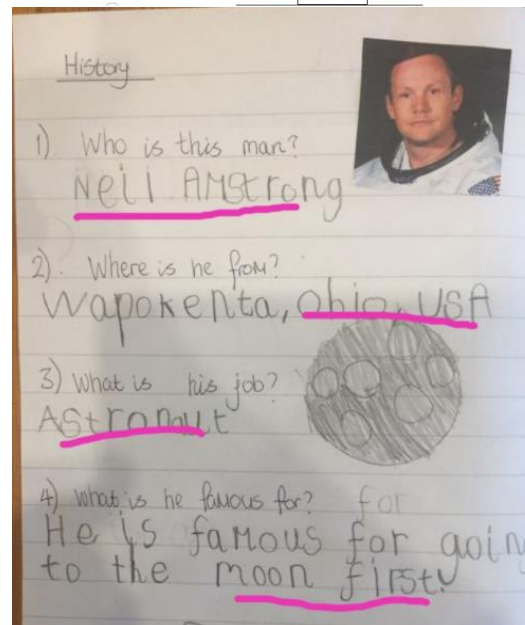 History
1) Who is this man?
Neil Amstrong
2). Where is he from?
Wapokenta, Ohio, USA
3) What is his job?
Astronut
4) What is he famous for? for
He is famous for going
to the moon first.